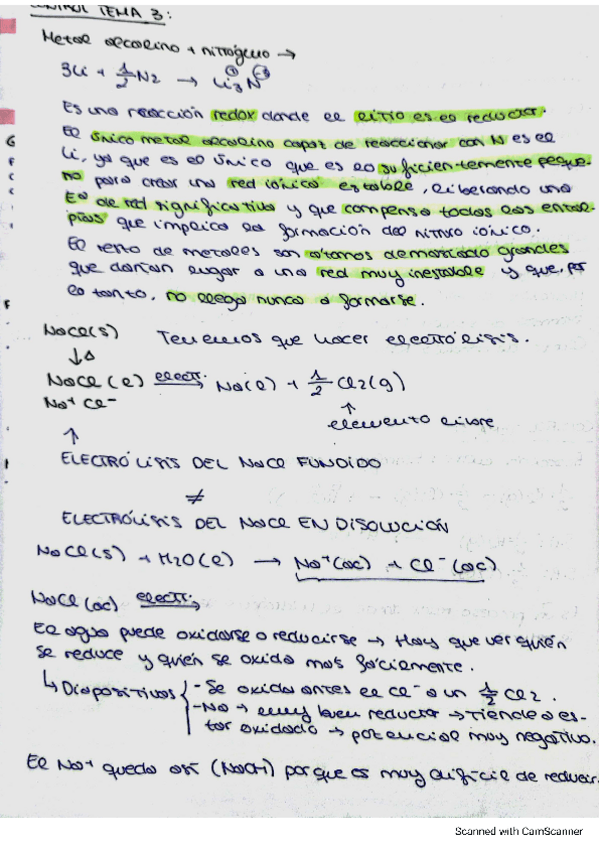 CONTROL TEMA 3:
Metal alcalino + nitrógeno →
3Li + 1/2 N2 → Li3N
Es una reacción redox donde el litio es el reductor.
El único metal alcalino capaz de reaccionar con N es el
Li, ya que es el único que es lo suficientemente peque-
ño para crear una red iónica estable, liberando una
En de red significativa y que compensa todas las ental-
pías que implica la formación del nitruro iónico.
El resto de metales son átomos demasiado grandes
que darían lugar a una red muy inestable y que, por
lo tanto, no llega nunca a formarse.
NaCl(s) Tenemos que hacer electrólisis.
↓Δ
NaCl(l) electr. → Na(l) + 1/2 Cl2(g)
Na+ Cl- ↑
elemento libre
↑
ELECTRÓLISIS DEL NaCl FUNDIDO
≠
ELECTRÓLISIS DEL NaCl EN DISOLUCIÓN
NaCl(s) + H2O(l) → Na+(ac) + Cl-(ac)
NaCl(ac) electr. →
El agua puede oxidarse o reducirse → Hay que ver quién
se reduce y quién se oxida más fácilmente.
↳ Diapositivas { - Se oxida antes el Cl- a un 1/2 Cl2.
- Na → muy buen reductor → Tiende a es-
tar oxidado → potencial muy negativo.
El Na+ queda así (NaOH) porque es muy difícil de reducir.
Scanned with CamScanner